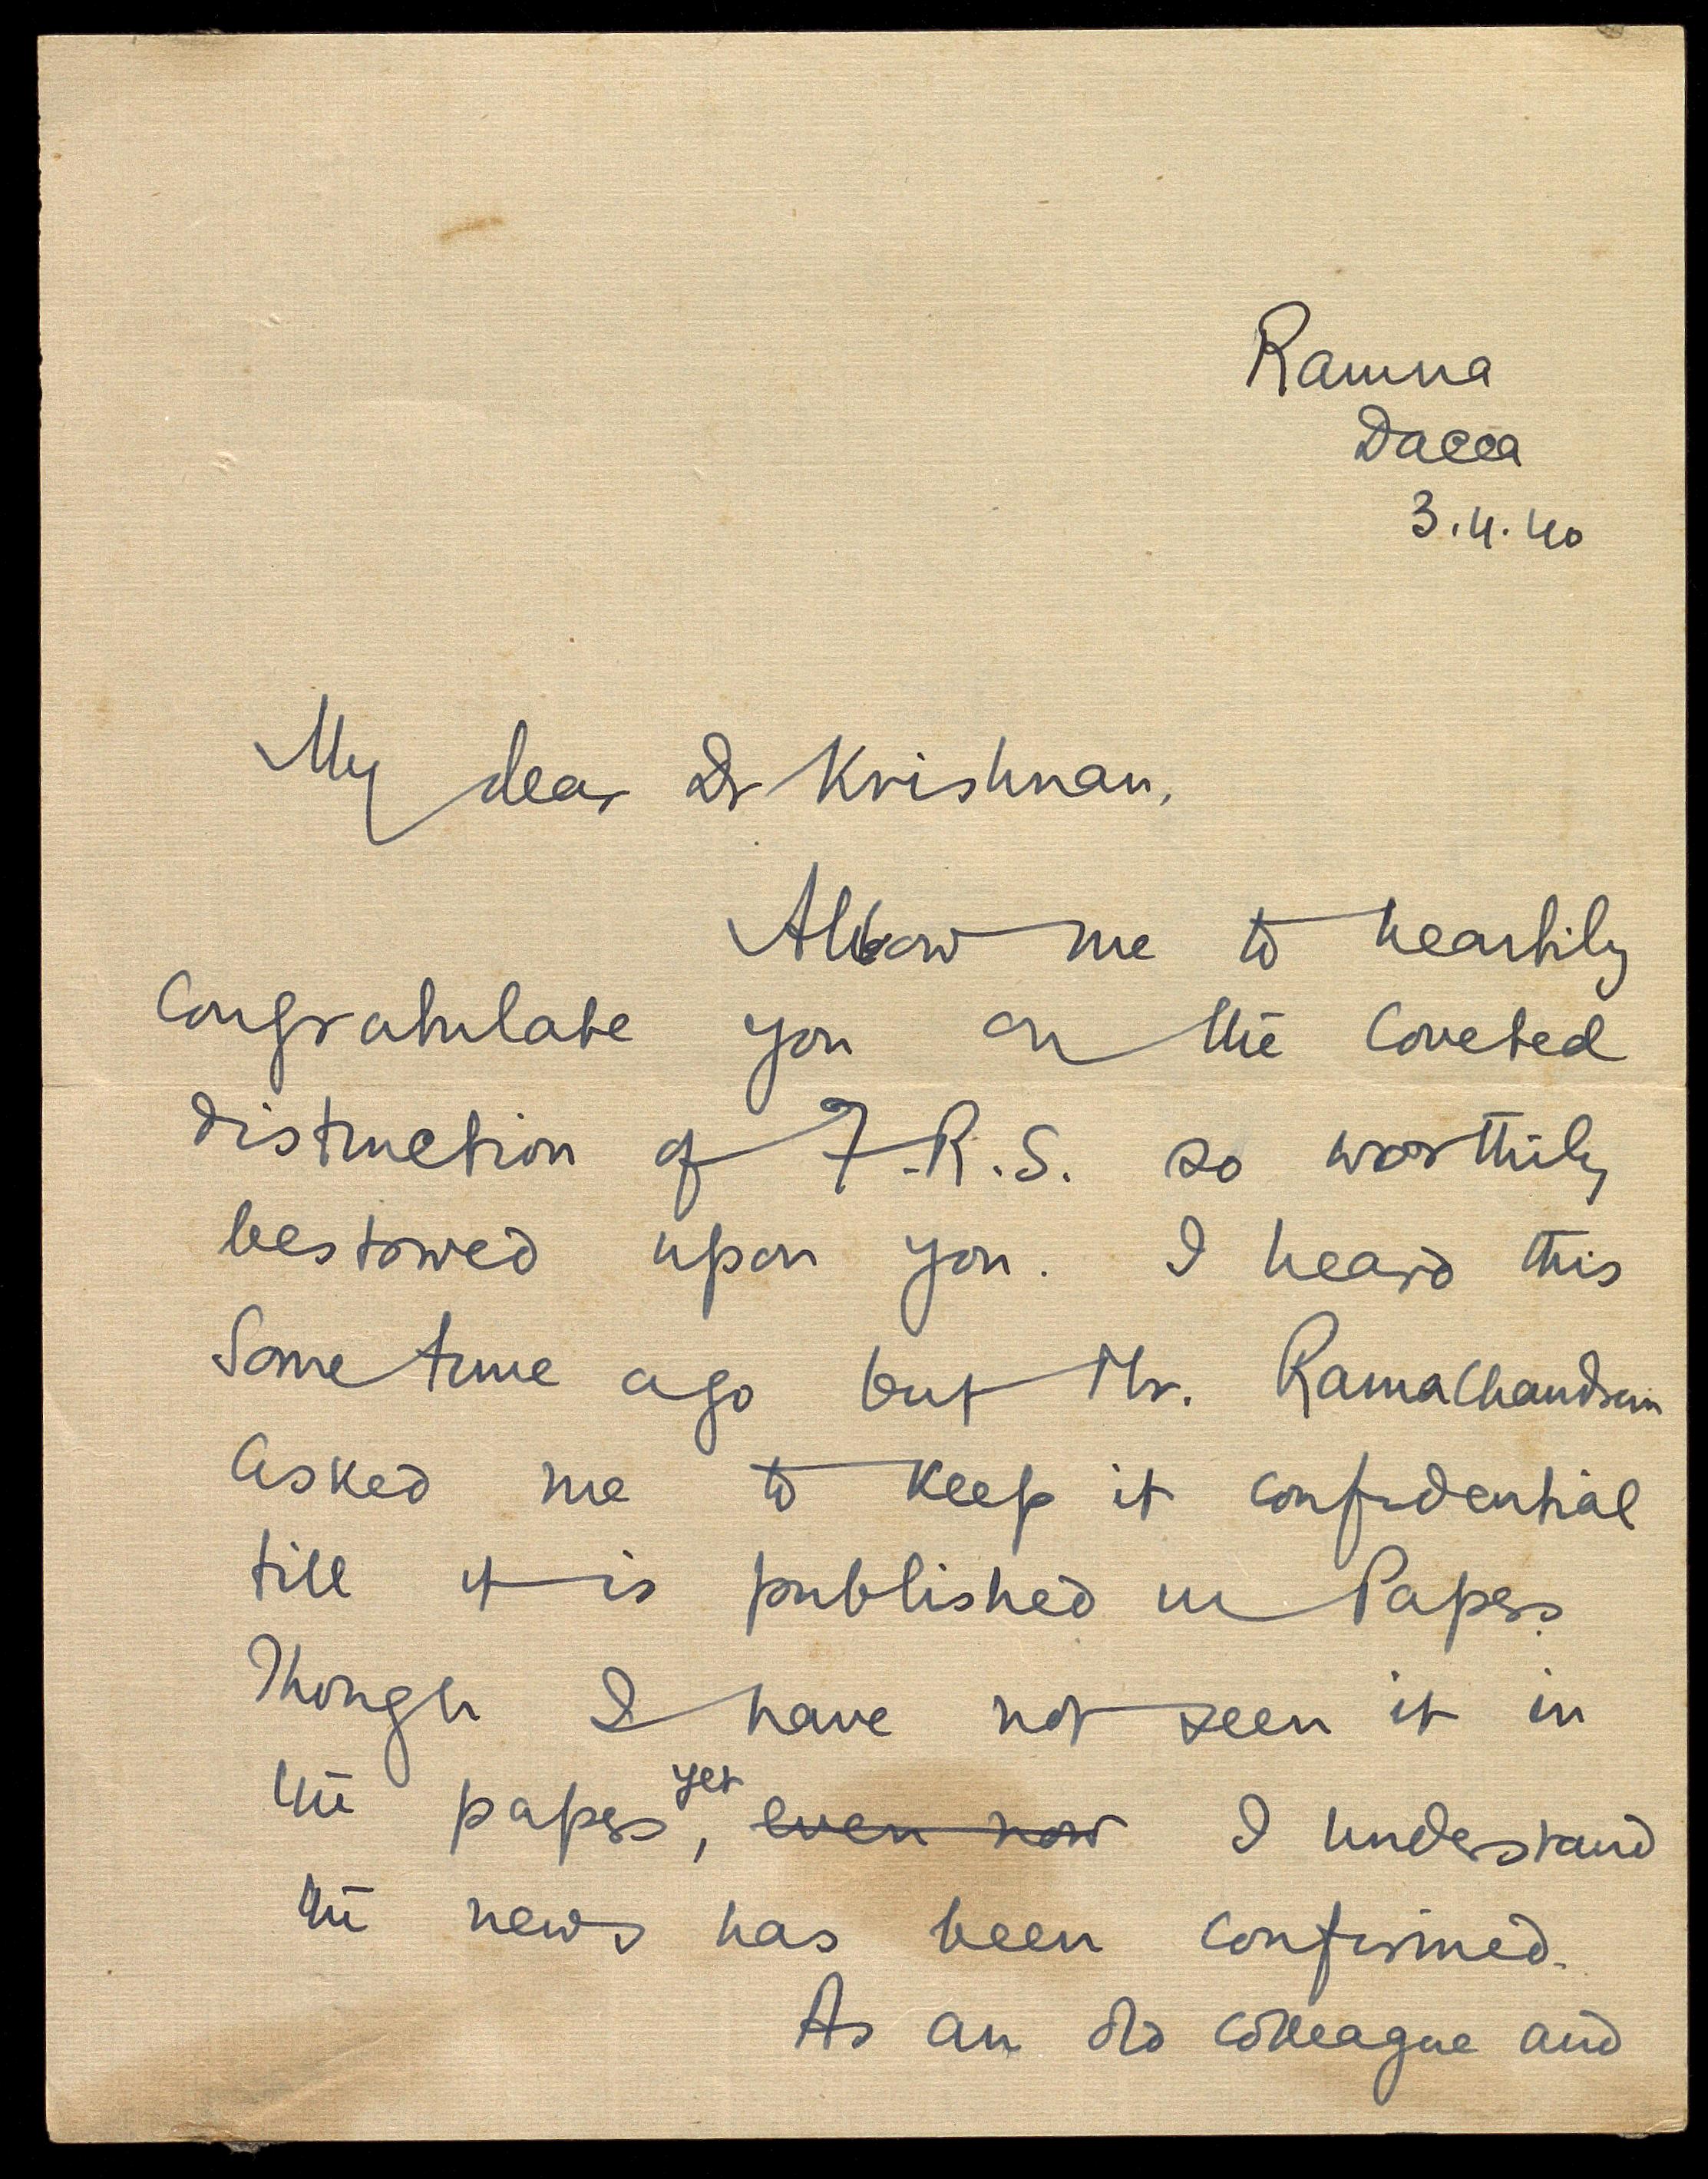 Ramna
Dacca
3.4.40
My dear Dr Krishnan,
Allow me to heartily
congratulate you on the coveted
distinction of F.R.S. so worthily
bestowed upon you. I heard this
Some time ago but Mr. Ramachandran
asked me to keep it confidential
till it is published in Papers.
Though I have not seen it in
the papers yet, even now I understand
the news has been confirmed.
As an old colleague and